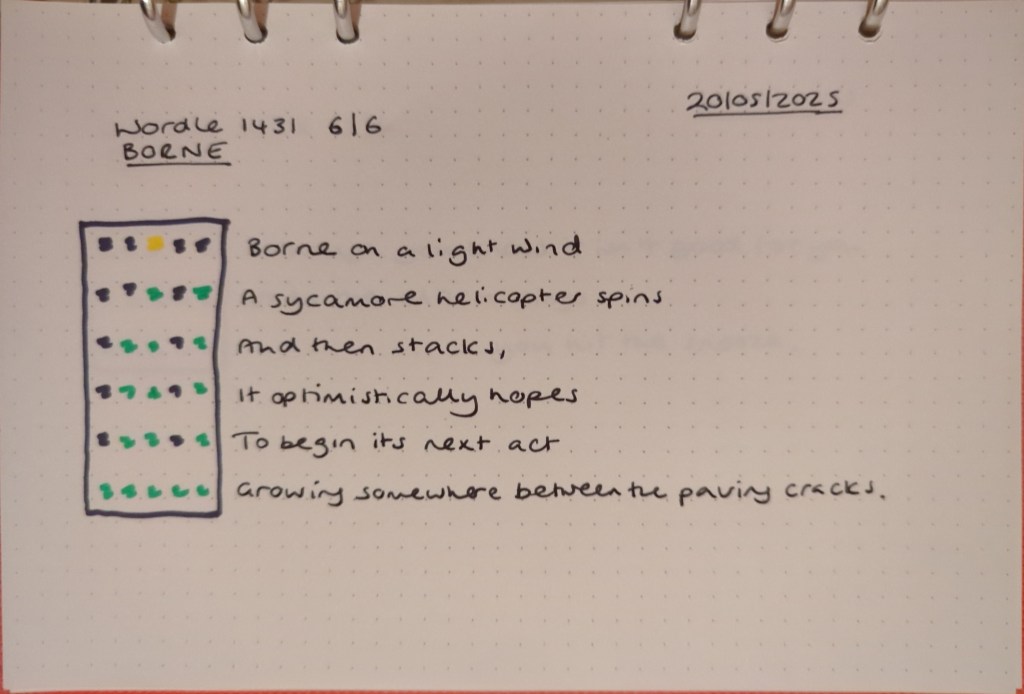 20/05/2025
Wordle 1431 6/6
BORNE
Borne on a light wind
A sycamore helicopter spins
And then stacks,
It optimistically hopes
To begin its next act
Growing somewhere between the paving cracks.